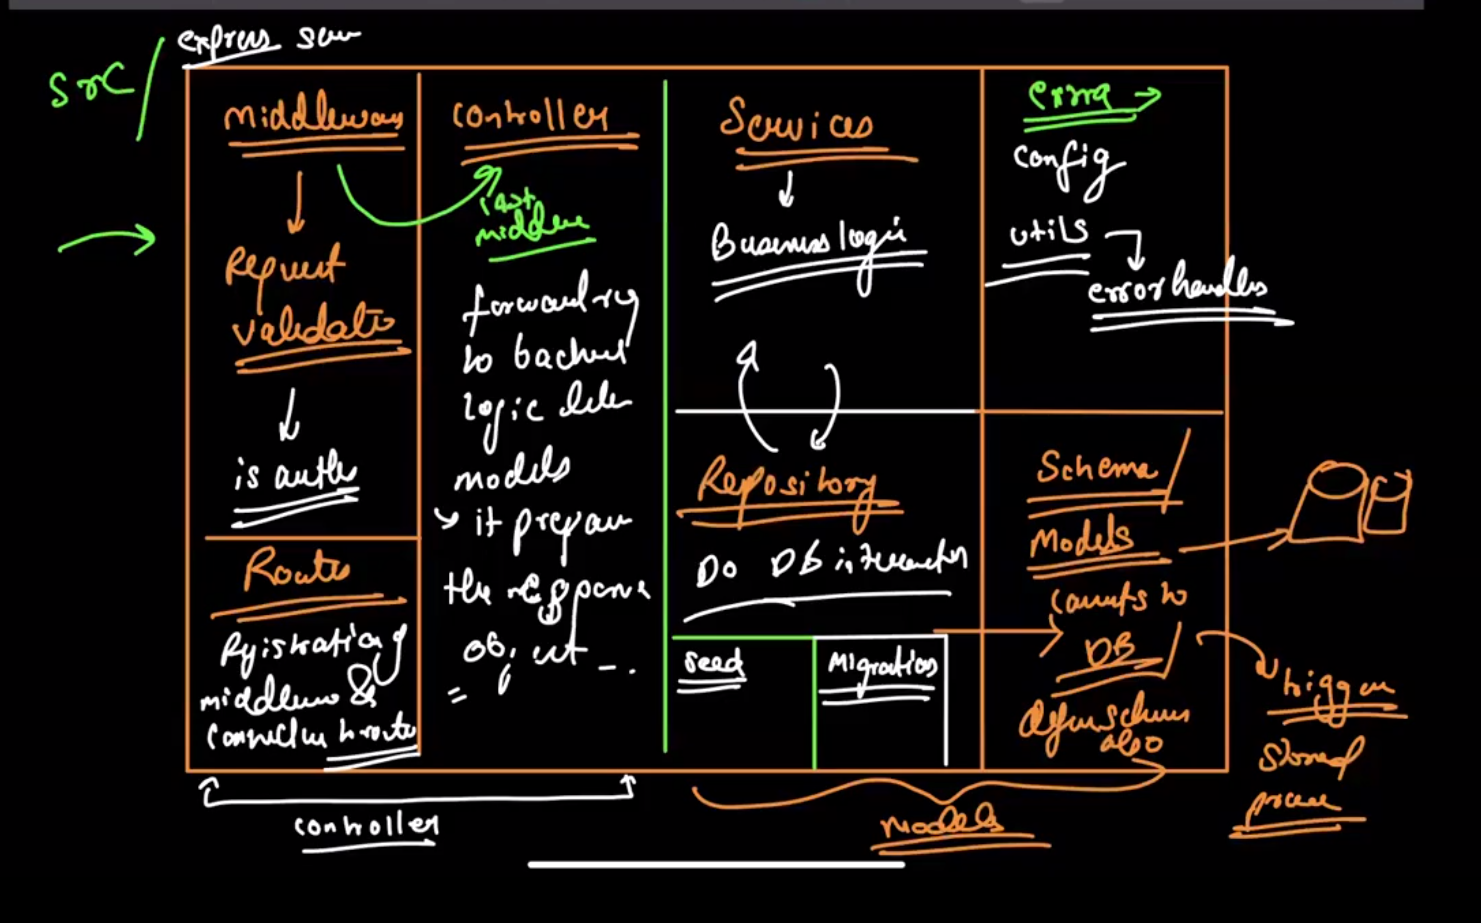 express
Src/
Middleware
Request
validatio
is authe
Routes
Registration of
middlew &
controller to route
controller
Controller
last
middlew
forward req
to backend
logic like
models
it prepare
the response
object
Services
Business logic
Repository
Do DB interaction
seed
Migrations
extra
config
utils
error handles
Schema/
Models
DB
define schema
also
trigger
stored
models